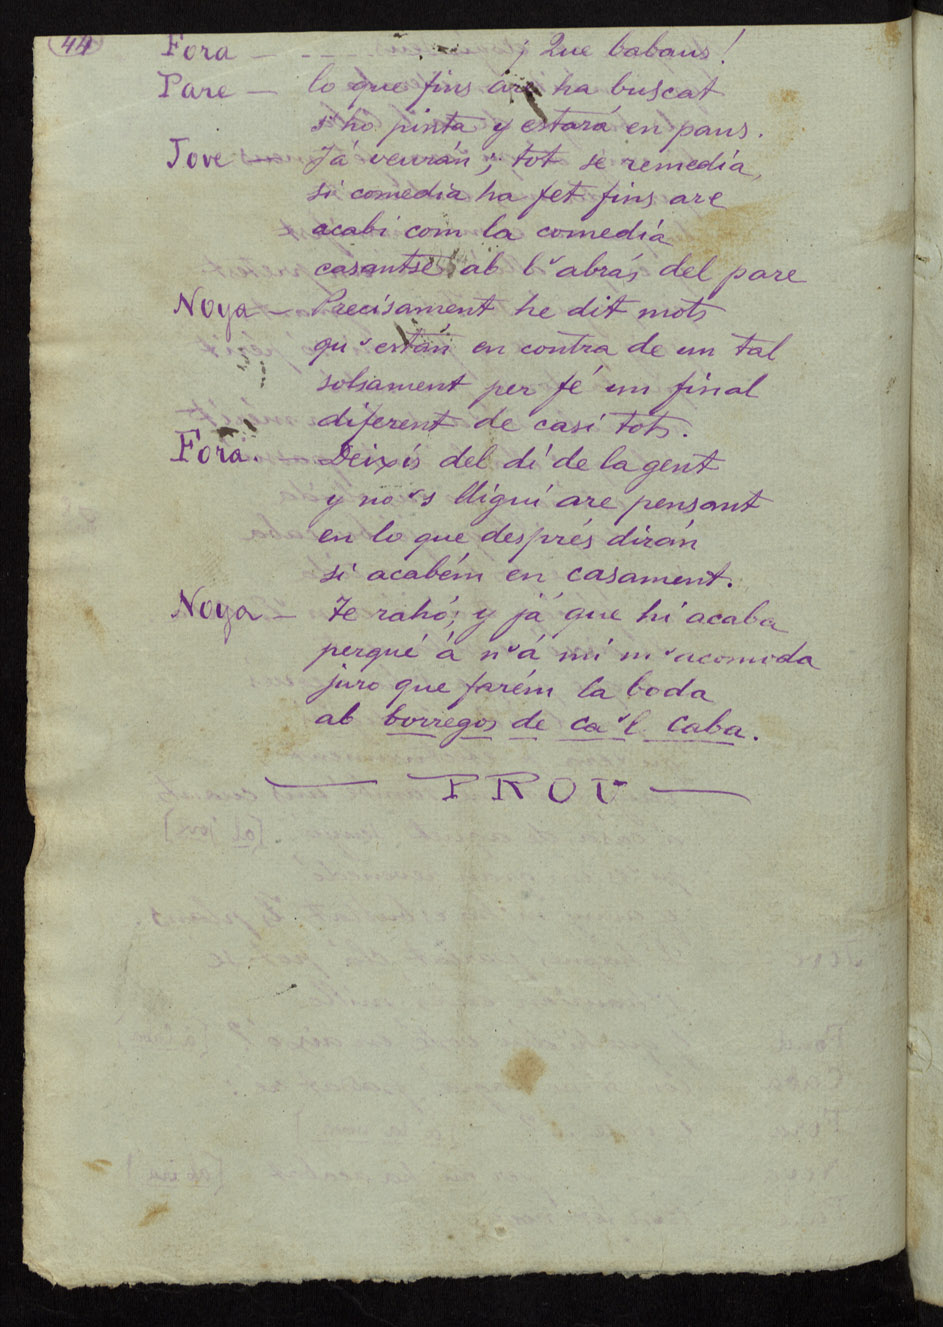 44
Fora — - - — — — ¡Que babaus!
Pare — lo que fins are ha buscat
s'ho pinta y estará en paus.
Jove Já veurán; tot se remedía,
si comedia ha fet fins are
acabi com la comedía
casantse ab l'abrás del pare
Noya — Precisament he dit mots
qu'están en contra de un tal
solsament per fé un final
diferent de casi tots.
Fora. Deixís del dí de la gent
y no's lliguí are pensant
en lo que després dirán
si acabém en casament.
Noya — Te rahó; y já que hi acaba
perqué á n'á mi m'acomoda
juro que farém la boda
ab borregos de ca'l Caba.
— PROU —